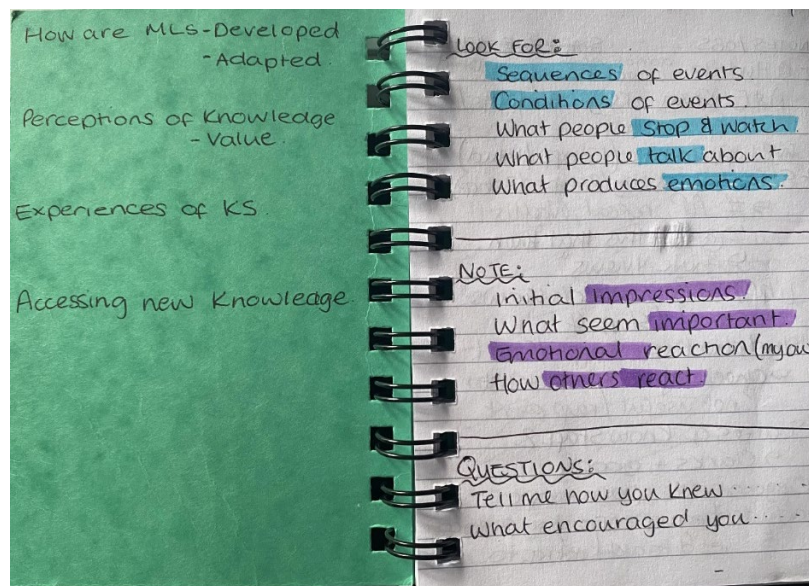 How are MLS-Developed
-Adapted.
Perceptions of Knowledge
-Value.
Experiences of KS.
Accessing new Knowledge.
LOOK FOR:
Sequences of events.
Conditions of events.
What people Stop & watch.
What people talk about
What produces emotions.
NOTE:
Initial impressions.
What seem important.
Emotional reaction (my ow
How others react.
QUESTIONS:
Tell me how you knew ......
What encouraged you .....